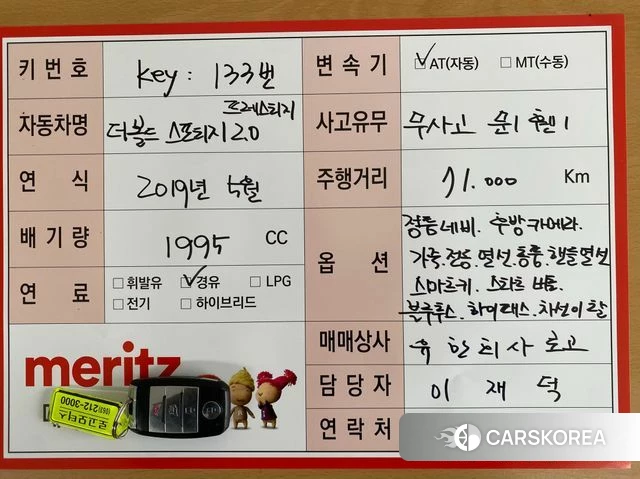 키 번호 key : 133번
변 속 기 ☑ AT(자동) ☐ MT(수동)
자동차명 더볼드 스포티지 2.0 프레스티지
사고유무 무사고 문1 휀1
연 식 2019년 5월
주행거리 71.000 Km
배 기 량 1995 CC
연 료 ☐ 휘발유 ☑ 경유 ☐ LPG
☐ 전기 ☐ 하이브리드
옵 션 정품네비. 후방카메라.
가죽.전동.열선.통풍.핸들열선
스마트키. 스타트 버튼.
블루투스. 하이패스. 차선이탈
매매상사 유한회사 로고
담 당 자 이 재 덕
연 락 처
meritz
로고모터스
212-3000
CARSKOREA